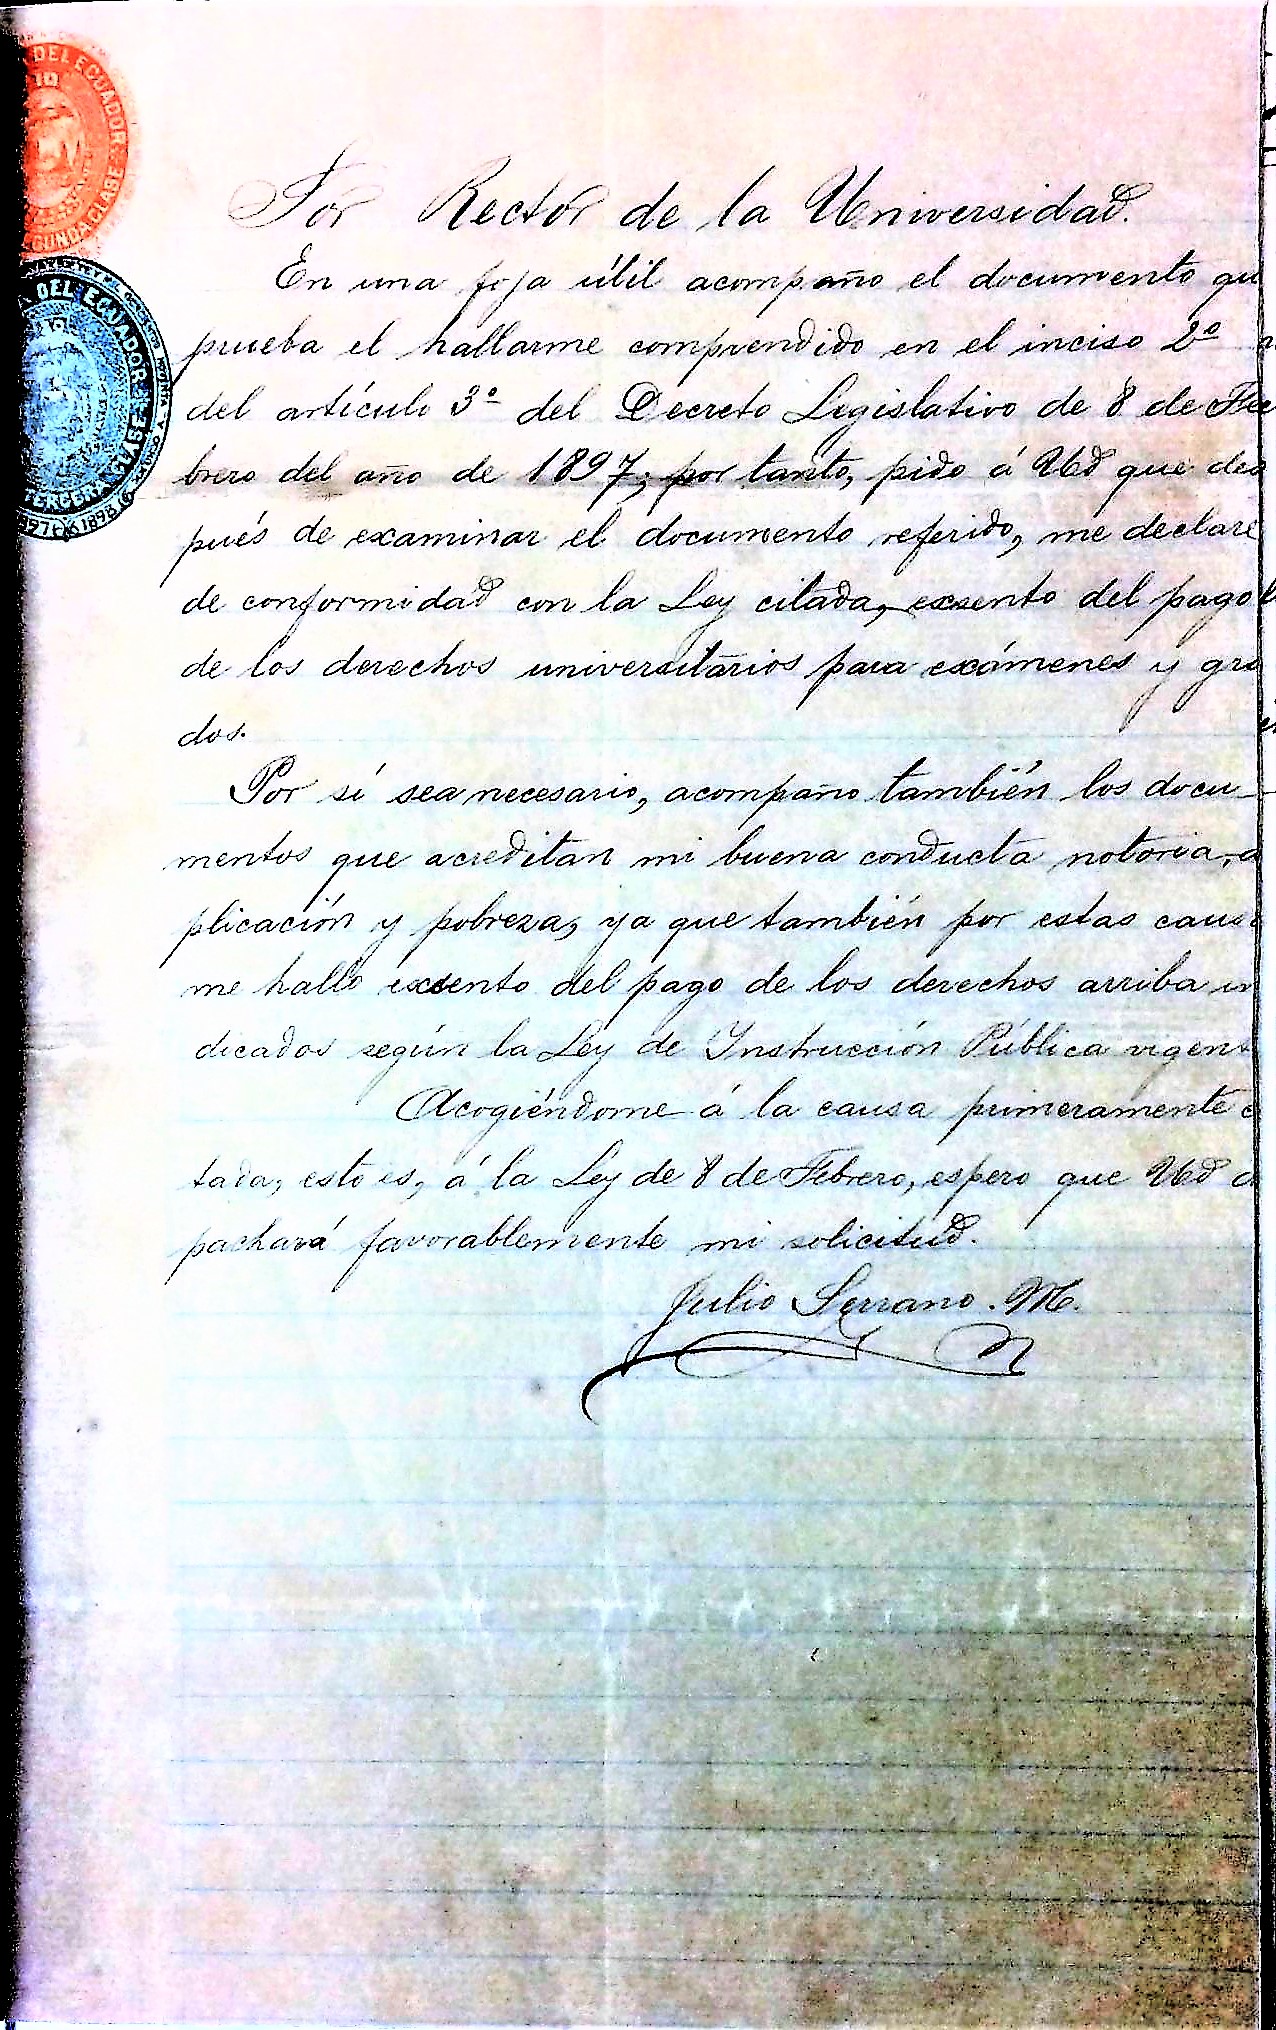 DEL ECUADOR
SEGUNDA CLASE
DEL ECUADOR
TERCERA CLASE
1897 1898
Sor Rector de la Universidad.
En una foja útil acompaño el documento qu
prueba el hallarme comprendido en el inciso 2º
del artículo 3º del Decreto Legislativo de 8 de Fe
brero del año de 1897; por tanto, pido á Ud que des
pués de examinar el documento referido, me declare
de conformidad con la Ley citada, exsento del pago
de los derechos universitarios para exámenes y gra
dos.
Por si sea necesario, acompaño también los docu-
mentos que acreditan mi buena conducta notoria, a
plicación y pobreza, ya que también por estas caus
me hallo exsento del pago de los derechos arriba in
dicados según la Ley de Instrucción Pública vigent
Acogiéndome á la causa primeramente c
tada, esto es, á la Ley de 8 de Febrero, espero que Ud d
pachará favorablemente mi solicitud.
Julio Serrano. M.